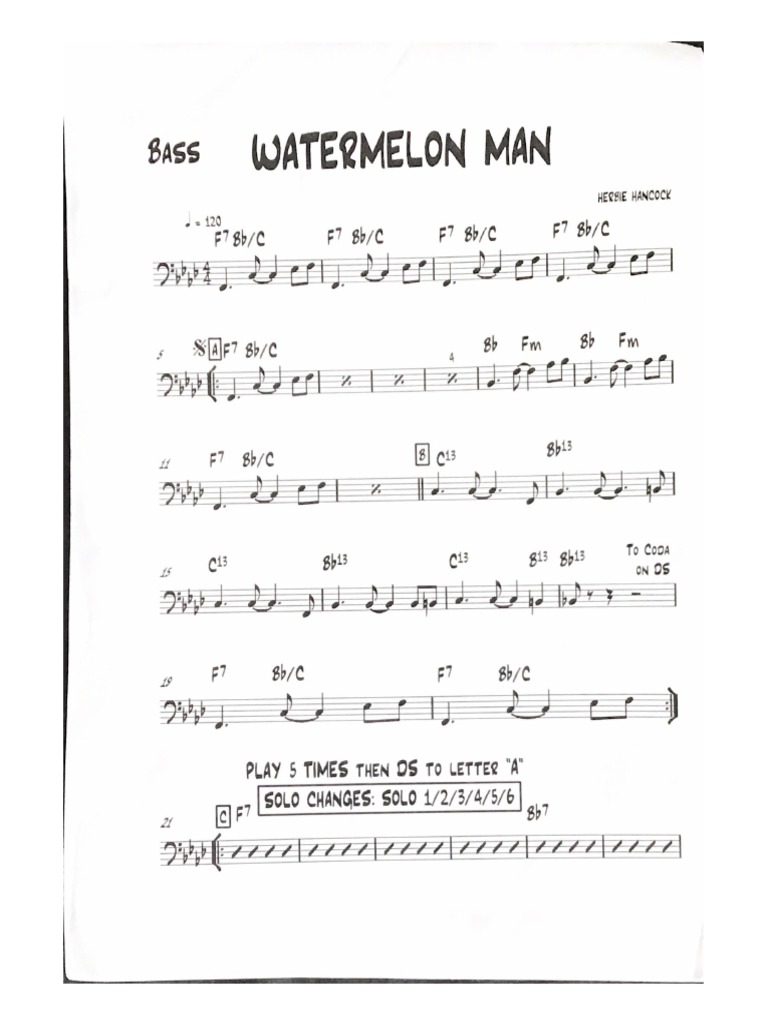 BASS WATERMELON MAN
HERBIE HANCOCK
♩ = 120
F7 Bb/C F7 Bb/C F7 Bb/C F7 Bb/C
5 A F7 Bb/C 4 Bb Fm Bb Fm
11 F7 Bb/C B C13 Bb13
15 C13 Bb13 C13 B13 Bb13 TO CODA
ON DS
19 F7 Bb/C F7 Bb/C
PLAY 5 TIMES THEN DS TO LETTER "A"
SOLO CHANGES: SOLO 1/2/3/4/5/6
21 C F7 Bb7